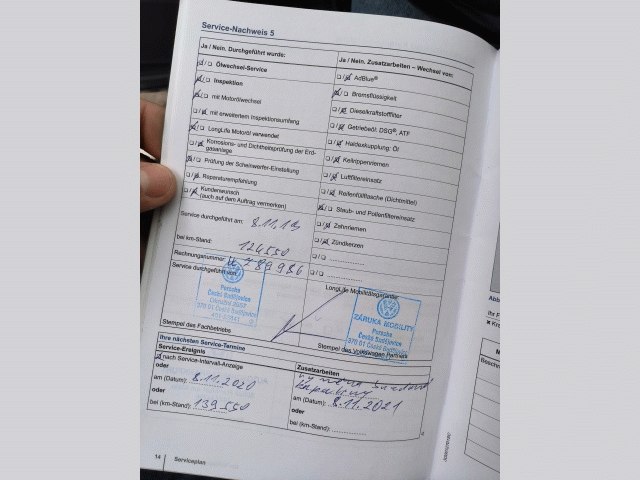 Service-Nachweis 5
Ja / Nein. Durchgeführt wurde:
Ölwechsel-Service
Inspektion
mit Motorölwechsel
mit erweitertem Inspektionsumfang
LongLife Motoröl verwendet
Korrosions- und Dichtheitsprüfung der Erd-
gasanlage
Prüfung der Scheinwerfer-Einstellung
Reparaturempfehlung
Kundenwunsch
(auch auf dem Auftrag vermerken)
Service durchgeführt am: 8.11.19
bei km-Stand: 124550
Rechnungsnummer: 789986
Service durchgeführt von:
Porsche
České Budějovice
370 01 České Budějovice
Stempel des Fachbetriebs
Ja / Nein. Zusatzarbeiten – Wechsel von:
AdBlue®
Bremsflüssigkeit
Dieselkraftstofffilter
Getriebeöl: DSG®, ATF
Haldexkupplung: Öl
Keilrippenriemen
Luftfiltereinsatz
Reifenfüllflasche (Dichtmittel)
Staub- und Pollenfiltereinsatz
Zahnriemen
Zündkerzen
LongLife Mobilitätsgarantie:
ZÁRUKA MOBILITY
Porsche
České Budějovice
370 01 České Budějovice
Stempel des Volkswagen Partners
Ihre nächsten Service-Termine
Service-Ereignis
nach Service-Intervall-Anzeige
oder
am (Datum): 8.11.2020
oder
bei (km-Stand): 139550
Zusatzarbeiten
am (Datum): 8.11.2021
oder
bei (km-Stand):
14 Serviceplan